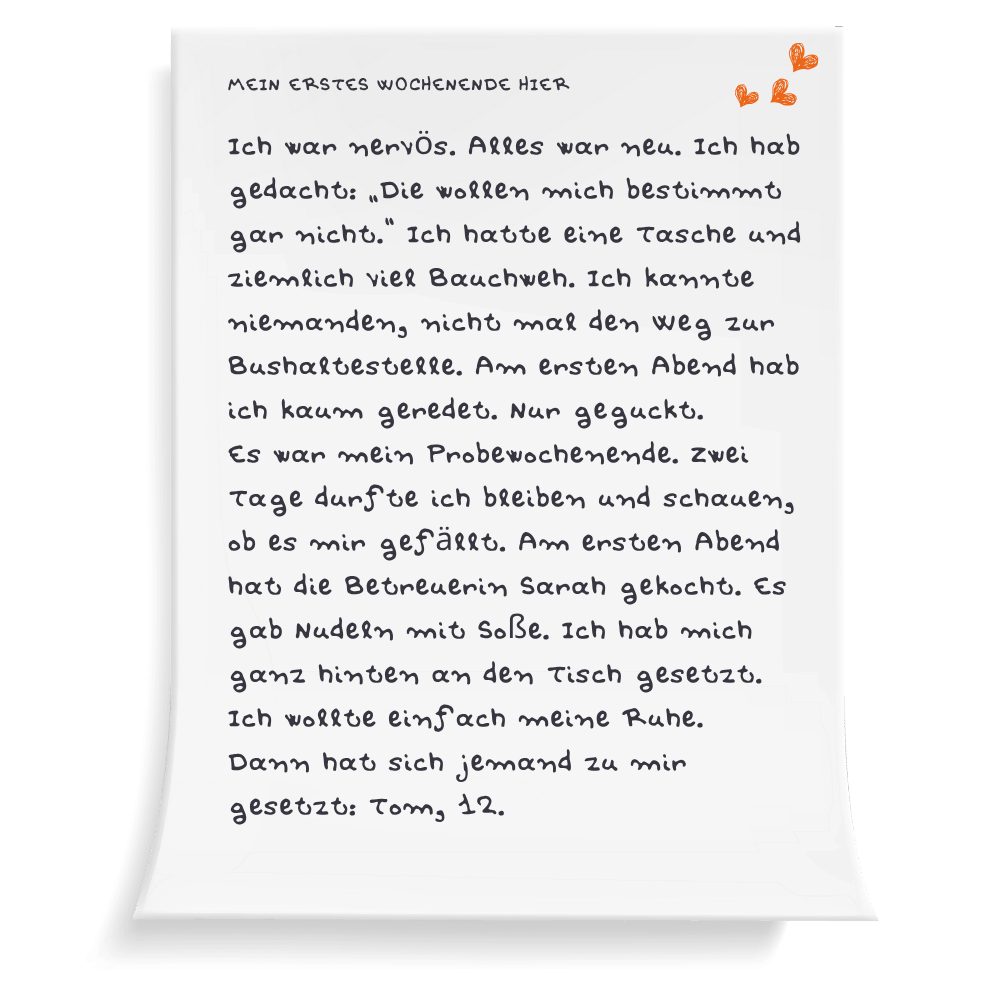 MEIN ERSTES WOCHENENDE HIER
Ich war nervÖs. Alles war neu. Ich hab
gedacht: „Die wollen mich bestimmt
gar nicht.“ Ich hatte eine Tasche und
ziemlich viel Bauchweh. Ich kannte
niemanden, nicht mal den Weg zur
Bushaltestelle. Am ersten Abend hab
ich kaum geredet. Nur geguckt.
Es war mein Probewochenende. Zwei
Tage durfte ich bleiben und schauen,
ob es mir gefällt. Am ersten Abend
hat die Betreuerin Sarah gekocht. Es
gab Nudeln mit Soße. Ich hab mich
ganz hinten an den Tisch gesetzt.
Ich wollte einfach meine Ruhe.
Dann hat sich jemand zu mir
gesetzt: Tom, 12.